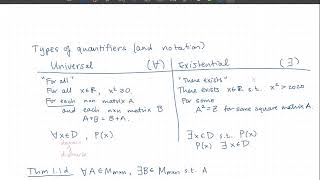 Types of quantifiers (and notation)
Universal (∀) Existential (∃)
"For all" "There exists"
For all x∈ℝ, x²≥0. There exists x∈ℝ s.t. x²>2020
For each n×n matrix A For some
and each n×n matrix B A²=B for some square matrix A.
A+B=B+A.
∀x∈D, P(x) ∃x∈D s.t. P(x)
domain P(x) ∃x∈D
of
discourse
Thm 1.1d ∀A∈Mmxn, ∃B∈Mmxn s.t. A